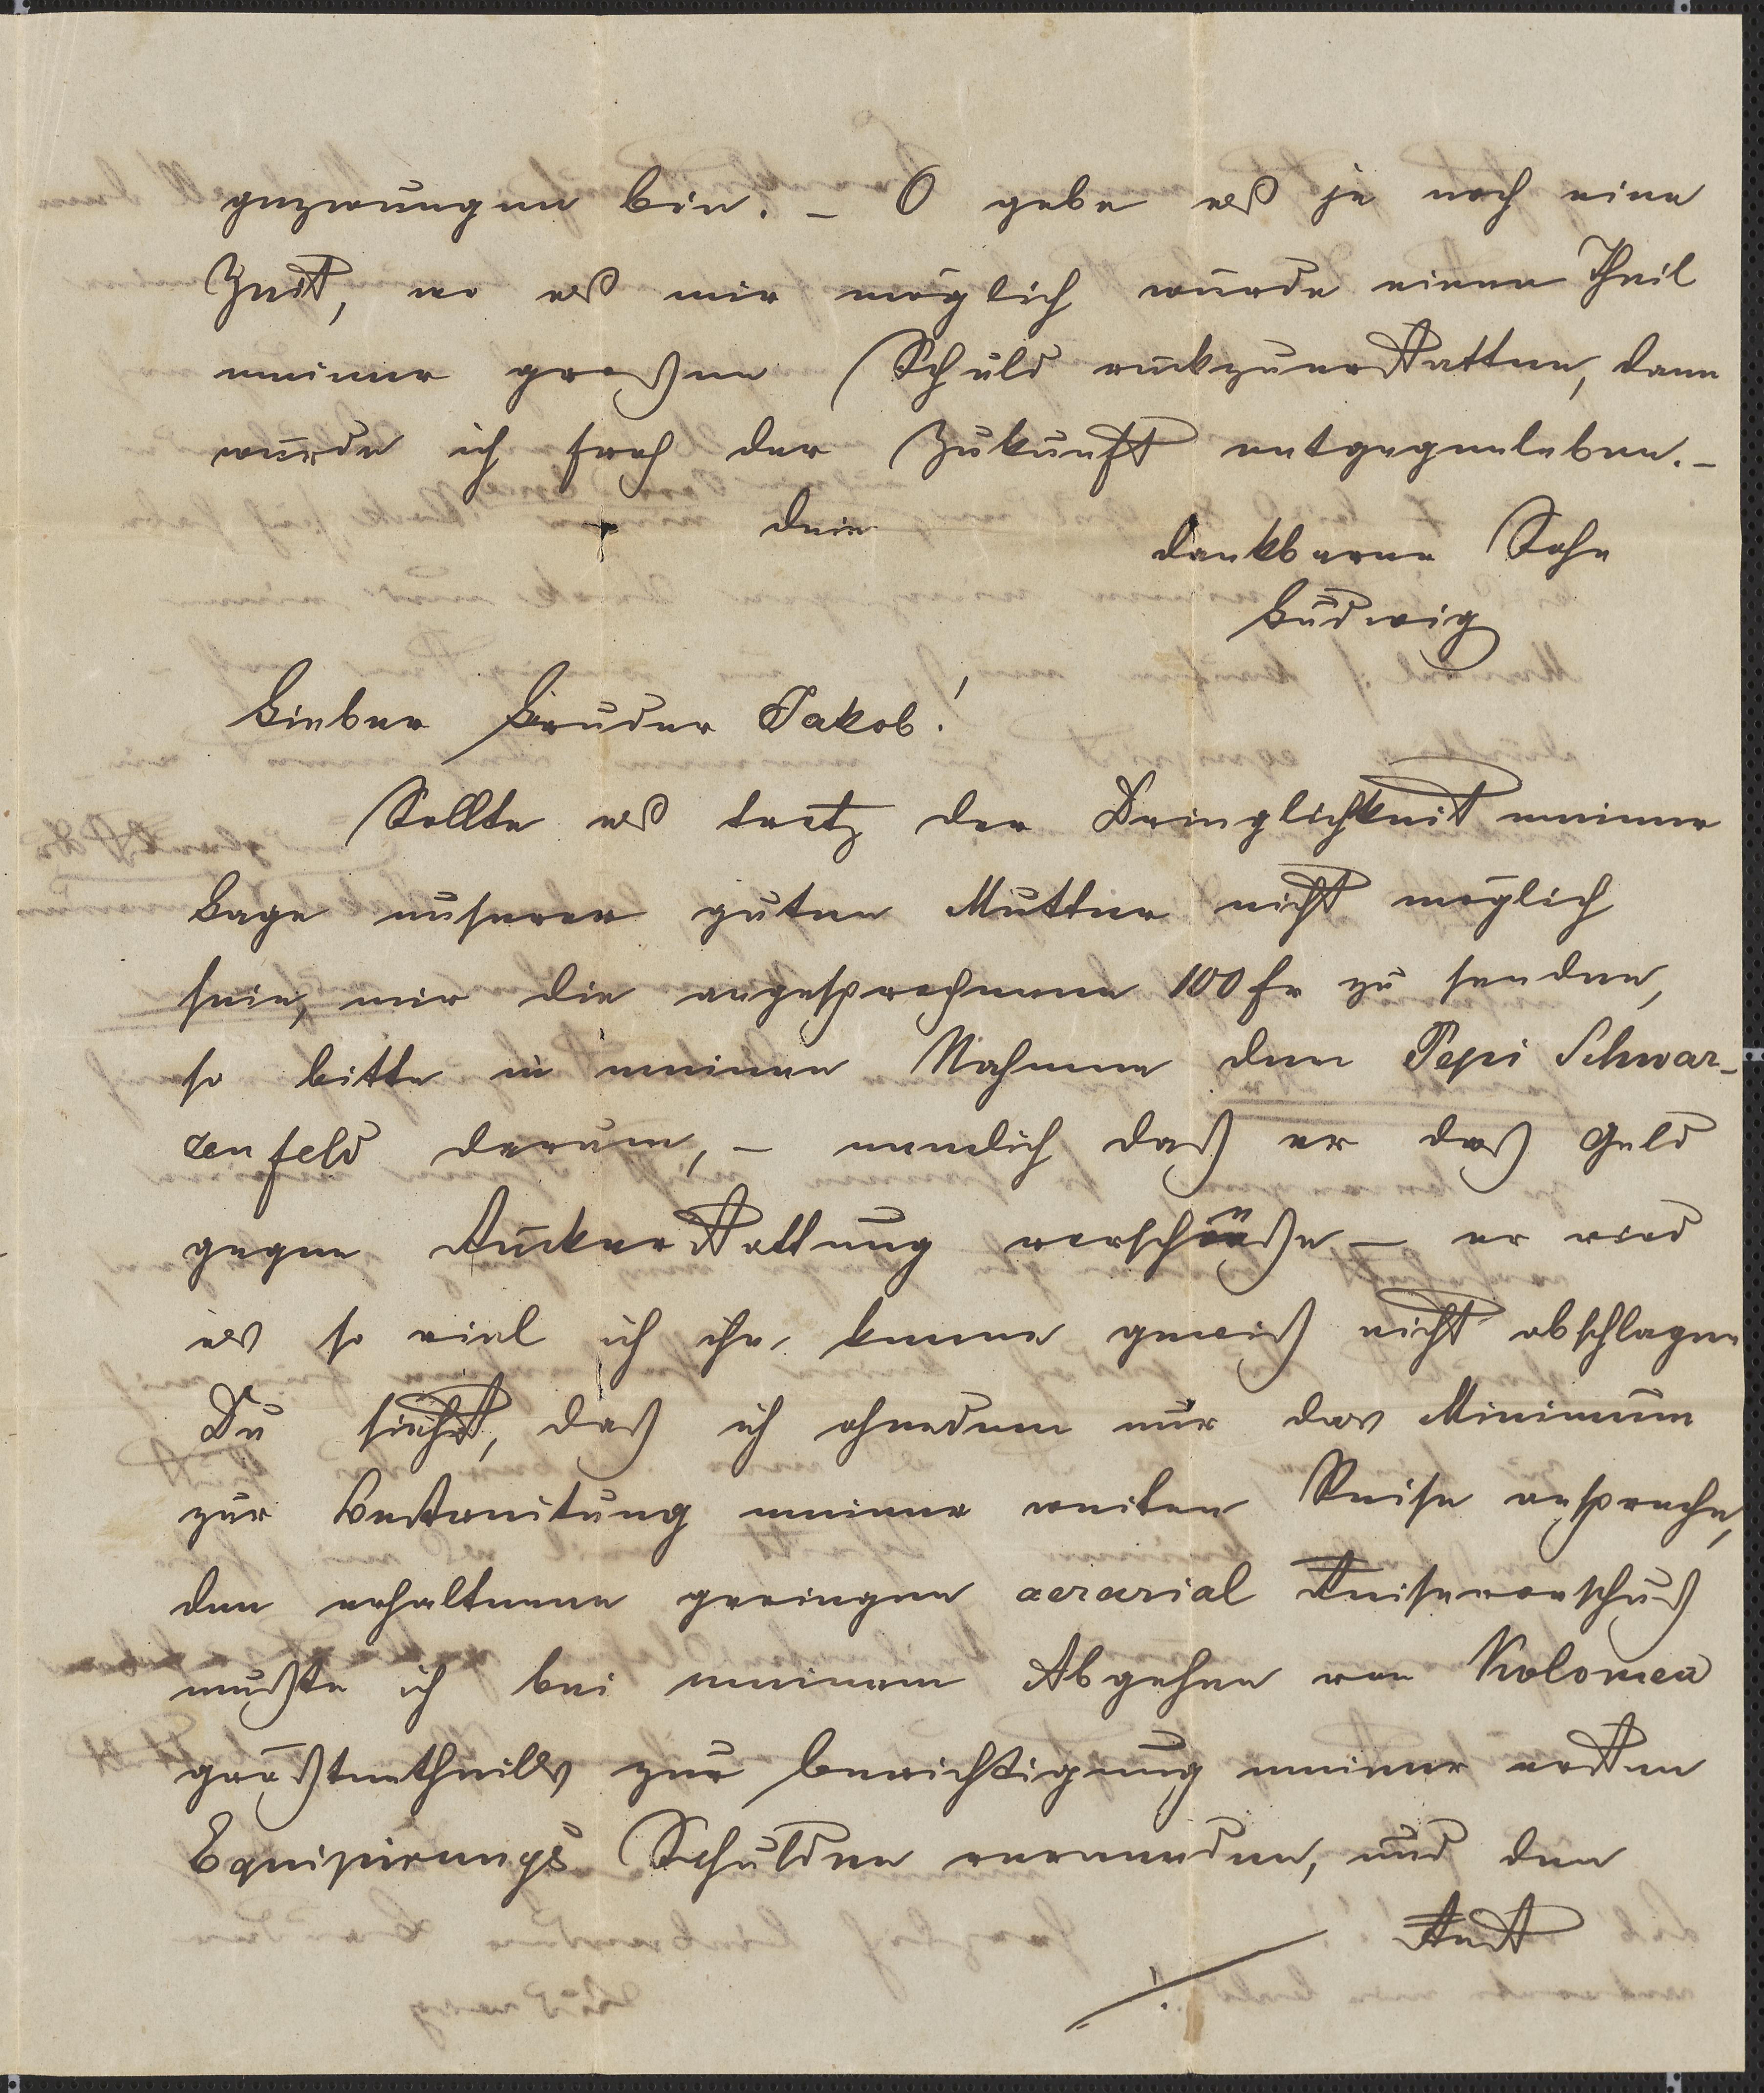 gezwungen bin. – O gebe es je noch eine
Zeit, wo es mir möglich würde einen Theil
meiner großen Schuld rückzuerstatten, dann
würde ich froh der Zukunft entgegenleben. –
Dein
dankbarer Sohn
Ludwig
Lieber Bruder Jakob!
Sollte es trotz der Dringlichkeit meiner
Lage unserer guten Mutter nicht möglich
sein, mir die angesprochenen 100 fr zu senden,
so bitte in meinen Nahmen den Pepi Schwar-
zenfeld darum, – nemlich daß er daß Geld
gegen Rückerstattung vorschöße – er wird
es so viel ich ihn kenne gewiß nicht abschlagen
Du siehst, daß ich ohnedem nur das Minimum
zur Bestreitung meiner weiten Reise anspreche,
den erhaltenen geringen aerarial Reisevorschuß
mußte ich bei meinem Abgehen von Kolomea
größtentheils zur berichtigung meiner ersten
Equipirungs Schulden verwenden, und den
Rest
./.